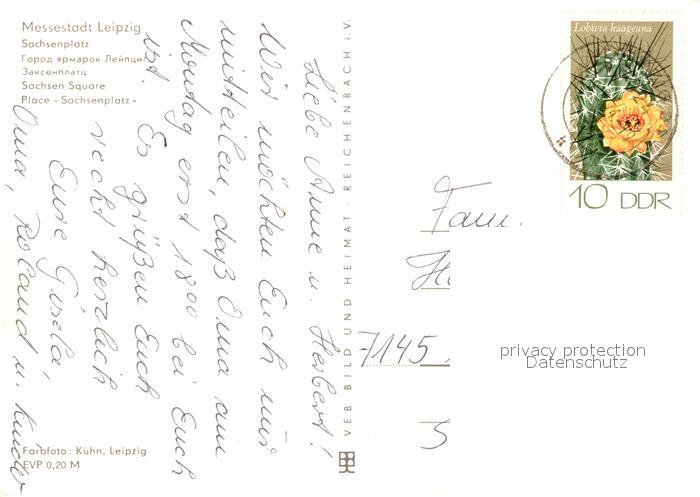 Messestadt Leipzig
Sachsenplatz
Город ярмарок Лейпциг
Заксенплатц
Sachsen Square
Place «Sachsenplatz»
Liebe Anne u. Herbert!
Wir möchten Euch nur
mitteilen, daß Oma am
Montag erst 18 00 bei Euch
ist.
Es grüßen Euch
recht herzlich
Eure Gisela,
Oma, Roland u. Kinder
Farbfoto: Kühn, Leipzig
EVP 0,20 M
VEB BILD UND HEIMAT · REICHENBACH i. V.
Lobivia haageana
10 DDR
Fam.
7145
privacy protection
Datenschutz